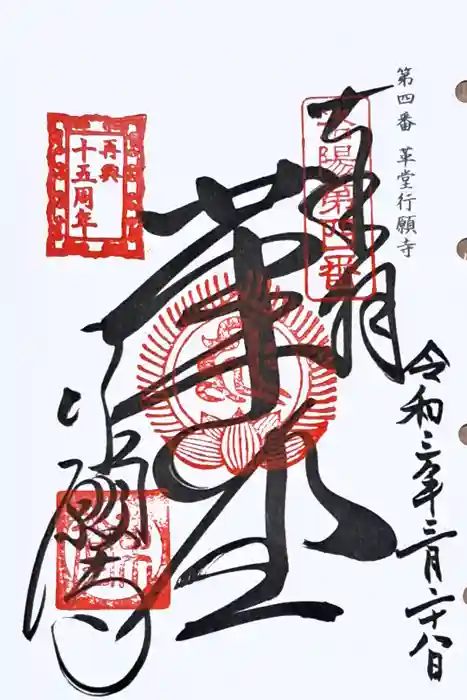 第四番 革堂行願寺
奉拝
洛陽第四番
令和三年三月二十八日
革堂
再興
十五周年
行願寺